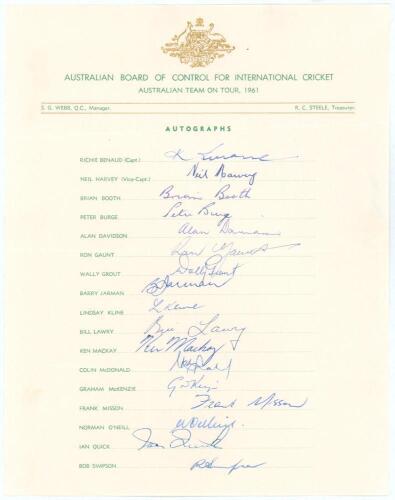 AUSTRALIAN BOARD OF CONTROL FOR INTERNATIONAL CRICKET
AUSTRALIAN TEAM ON TOUR, 1961
S. G. WEBB, Q.C., Manager. R. C. STEELE, Treasurer.
AUTOGRAPHS
RICHIE BENAUD (Capt.)
NEIL HARVEY (Vice-Capt.) Neil Harvey
BRIAN BOOTH Brian Booth
PETER BURGE Peter Burge
ALAN DAVIDSON Alan Davidson
RON GAUNT Ron Gaunt
WALLY GROUT Wally Grout
BARRY JARMAN B Jarman
LINDSAY KLINE L Kline
BILL LAWRY Bill Lawry
KEN MACKAY Ken Mackay
COLIN McDONALD
GRAHAM McKENZIE
FRANK MISSON Frank Misson
NORMAN O'NEILL
IAN QUICK Ian Quick
BOB SIMPSON R Simpson